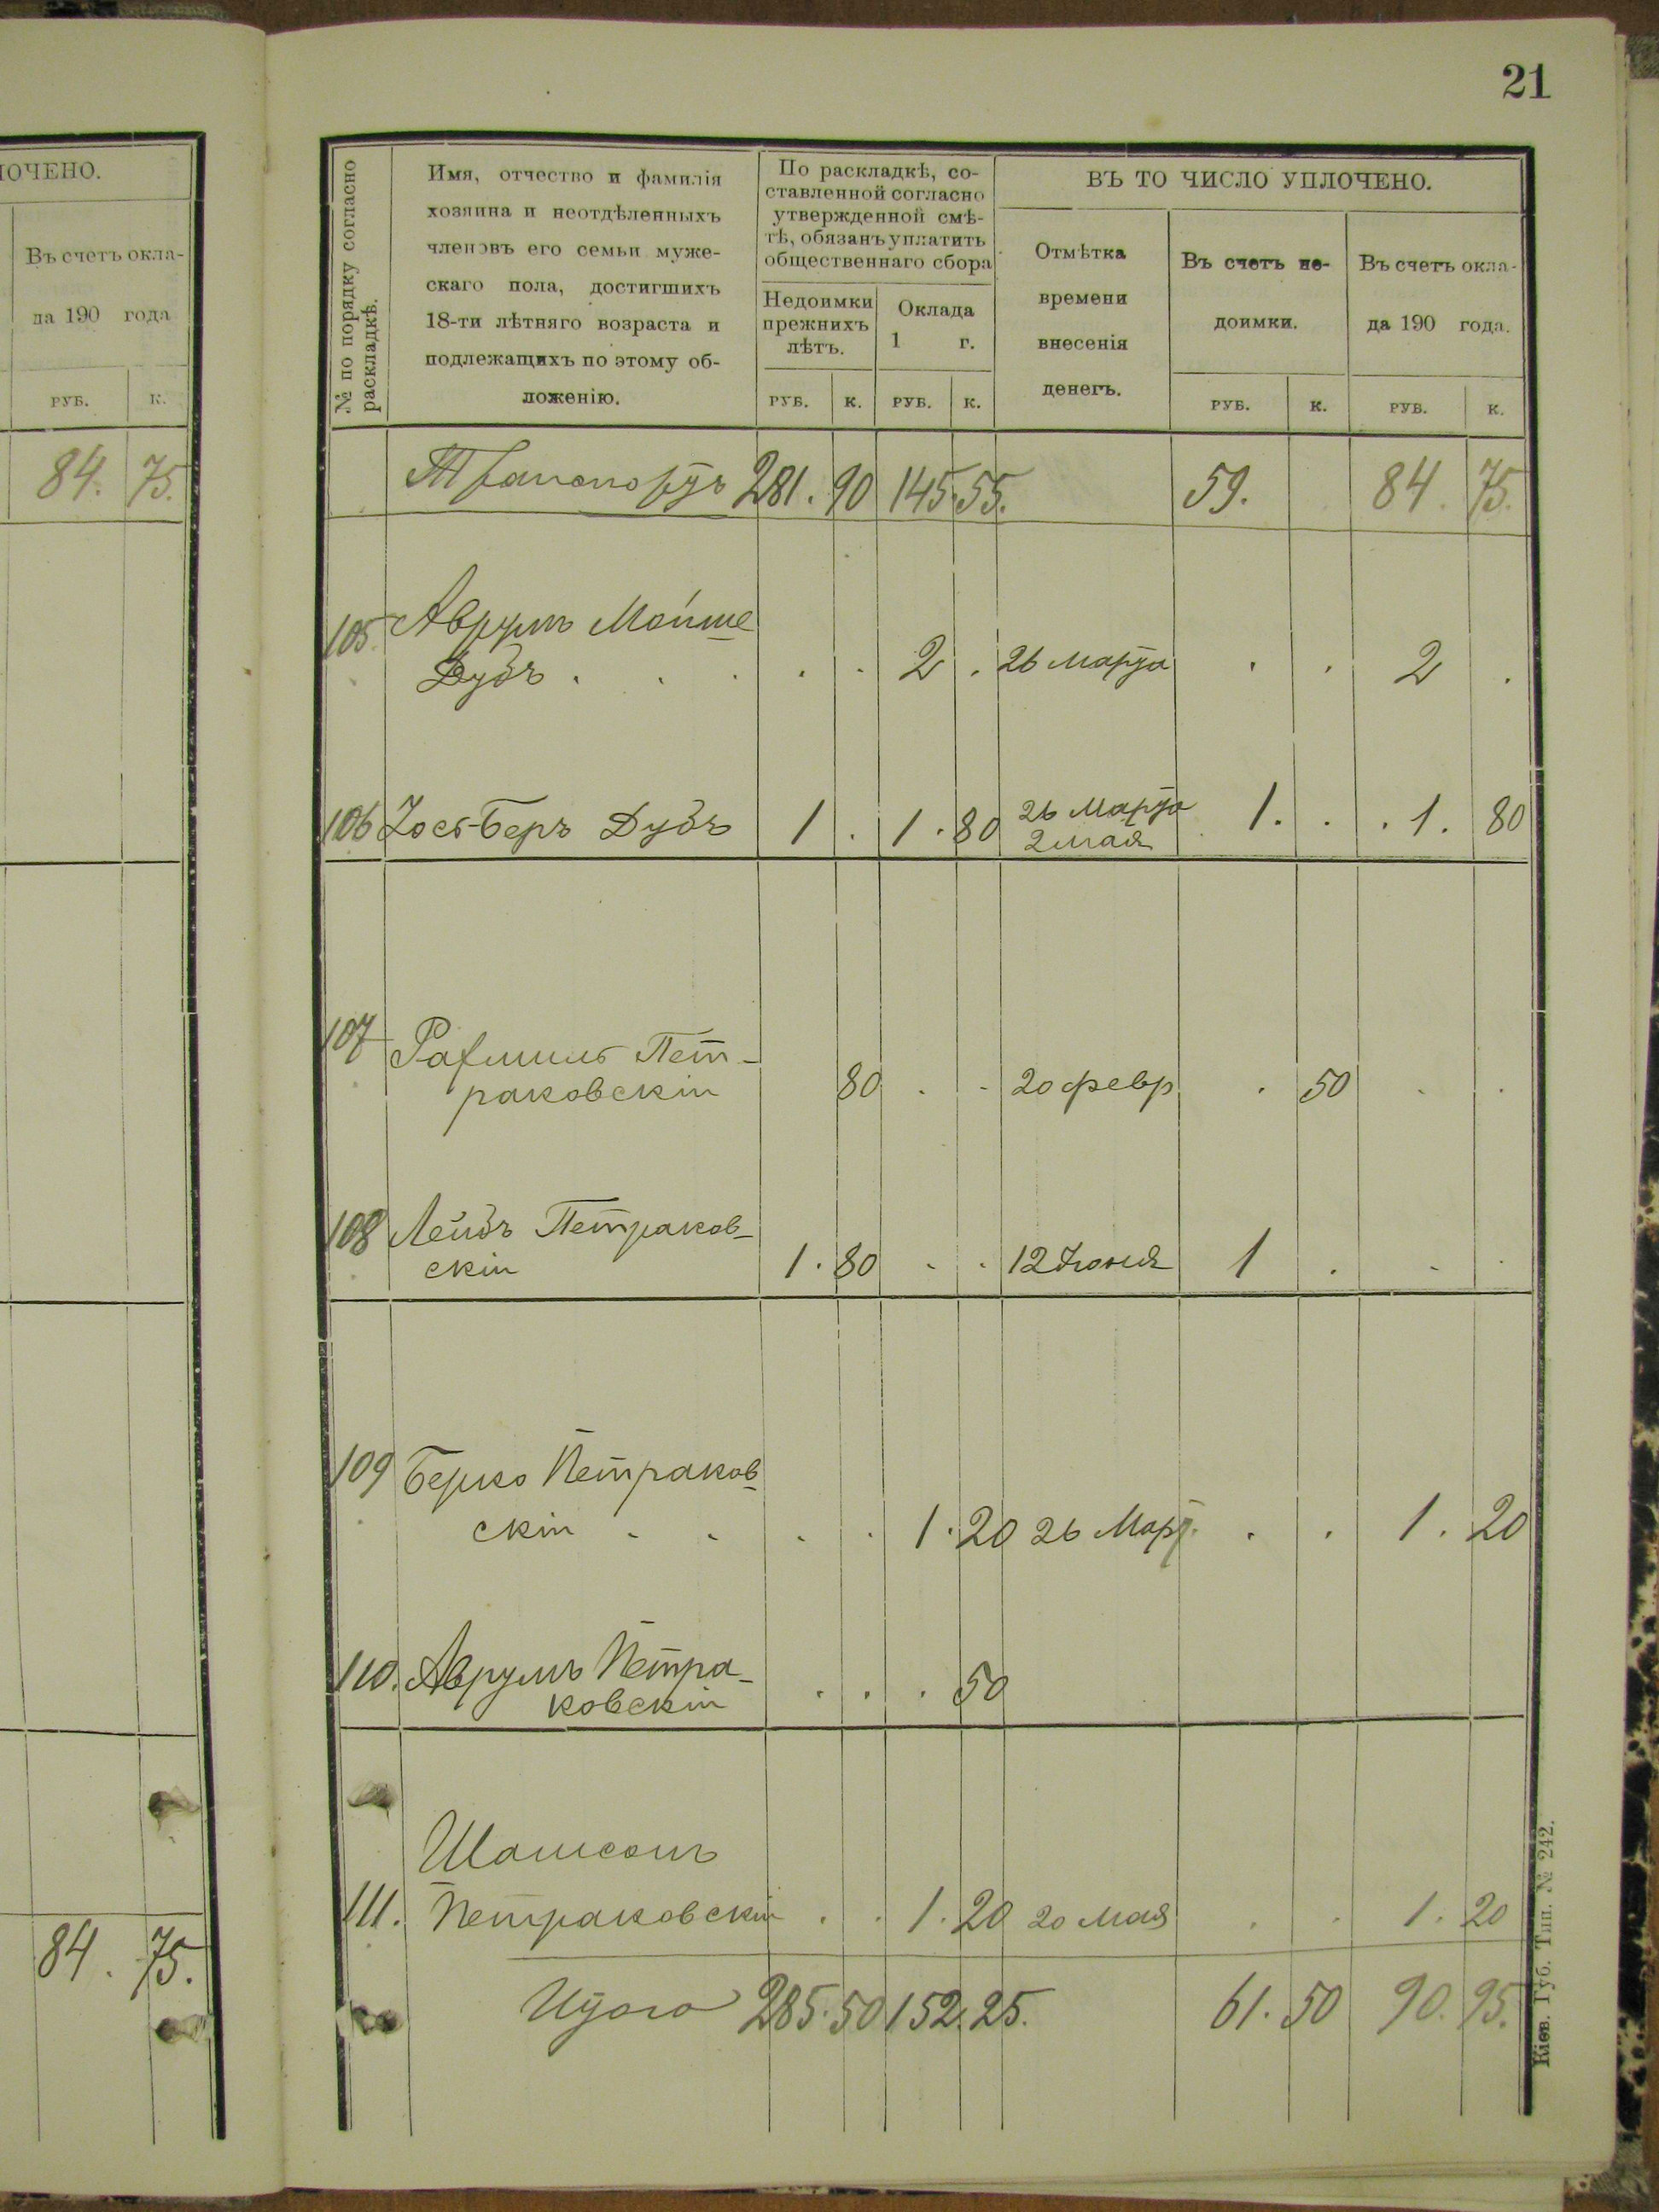 21
ЛОЧЕНО.
Въ счетъ окла-
да 190 года
РУБ. К.
84. 75.
84. 75.
№ по порядку согласно
раскладкѣ.
Имя, отчество и фамилія
хозяина и неотдѣленныхъ
членовъ его семьи муже-
скаго пола, достигшихъ
18-ти лѣтняго возраста и
подлежащихъ по этому об-
ложенію.
По раскладкѣ, со-
ставленной согласно
утвержденной смѣ-
тѣ, обязанъ уплатить
общественнаго сбора
Недоимки
прежнихъ
лѣтъ.
Оклада
1 г.
РУБ. К. РУБ. К.
ВЪ ТО ЧИСЛО УПЛОЧЕНО.
Отмѣтка
времени
внесенія
денегъ.
Въ счетъ не-
доимки.
РУБ. К.
Въ счетъ окла-
да 190 года.
РУБ. К.
Транспортъ 281. 90 145. 55. 59. 84. 75.
105. Аврумъ Мойше
Дубъ . . . . . 2 . 26 марта . . 2 .
106 Іось-Беръ Дубъ 1 . 1. 80 26 Марта 1. . . 1. 80
2 мая
107 Рахмиль Пет-
раковскій 80 . . 20 февр . 50 . .
108 Лейбъ Петраков-
скій 1. 80 . . 12 Іюня 1 . . .
109 Берко Петраков-
скій . . . . 1. 20 26 Март. . . 1. 20
110. Аврумъ Петра-
ковскій . . . 50
Шамсонъ
111. Петраковскій . . 1. 20 20 мая . . 1. 20
Итого 285. 50 152. 25. 61. 50 90. 95.
Кіев. Губ. Тип. № 242.